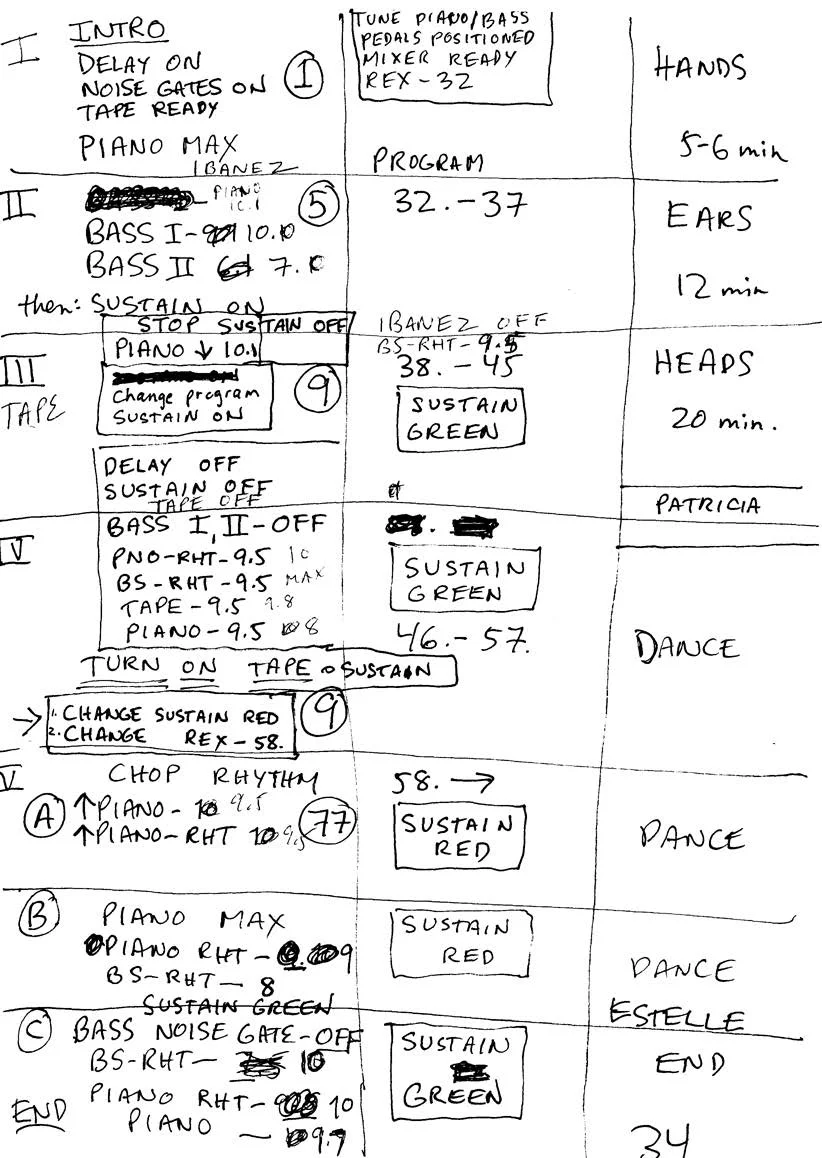 I
INTRO
DELAY ON
NOISE GATES ON
TAPE READY
1
PIANO MAX
TUNE PIANO/BASS
PEDALS POSITIONED
MIXER READY
REX-32
PROGRAM
HANDS
5-6 min
II
IBANEZ
PIANO
10.1
5
BASS I- 10.0
BASS II 7.
then: SUSTAIN ON
32.-37
EARS
12 min
III
TAPE
STOP SUSTAIN OFF
PIANO ↓ 10.1
Change program
SUSTAIN ON
9
IBANEZ OFF
BS-RHT-9.5
38.-45
SUSTAIN
GREEN
HEADS
20 min.
DELAY OFF
SUSTAIN OFF
TAPE OFF
PATRICIA
V
BASS I, II-OFF
PNO-RHT-9.5 10
BS-RHT-9.5 MAX
TAPE-9.5 9.8
PIANO-9.5 8
TURN ON TAPE SUSTAIN
→ 1. CHANGE SUSTAIN RED
2. CHANGE REX-58.
9
SUSTAIN
GREEN
46.-57.
DANCE
V
CHOP RHYTHM
A
↑PIANO- 9.5
↑PIANO-RHT 9.5
77
58. →
SUSTAIN
RED
DANCE
B
PIANO MAX
PIANO RHT- 9
BS-RHT- 8
SUSTAIN GREEN
SUSTAIN
RED
DANCE
ESTELLE
C
BASS NOISE GATE-OFF
BS-RHT- 10
END
PIANO RHT- 10
PIANO - 9.7
SUSTAIN
GREEN
END
34